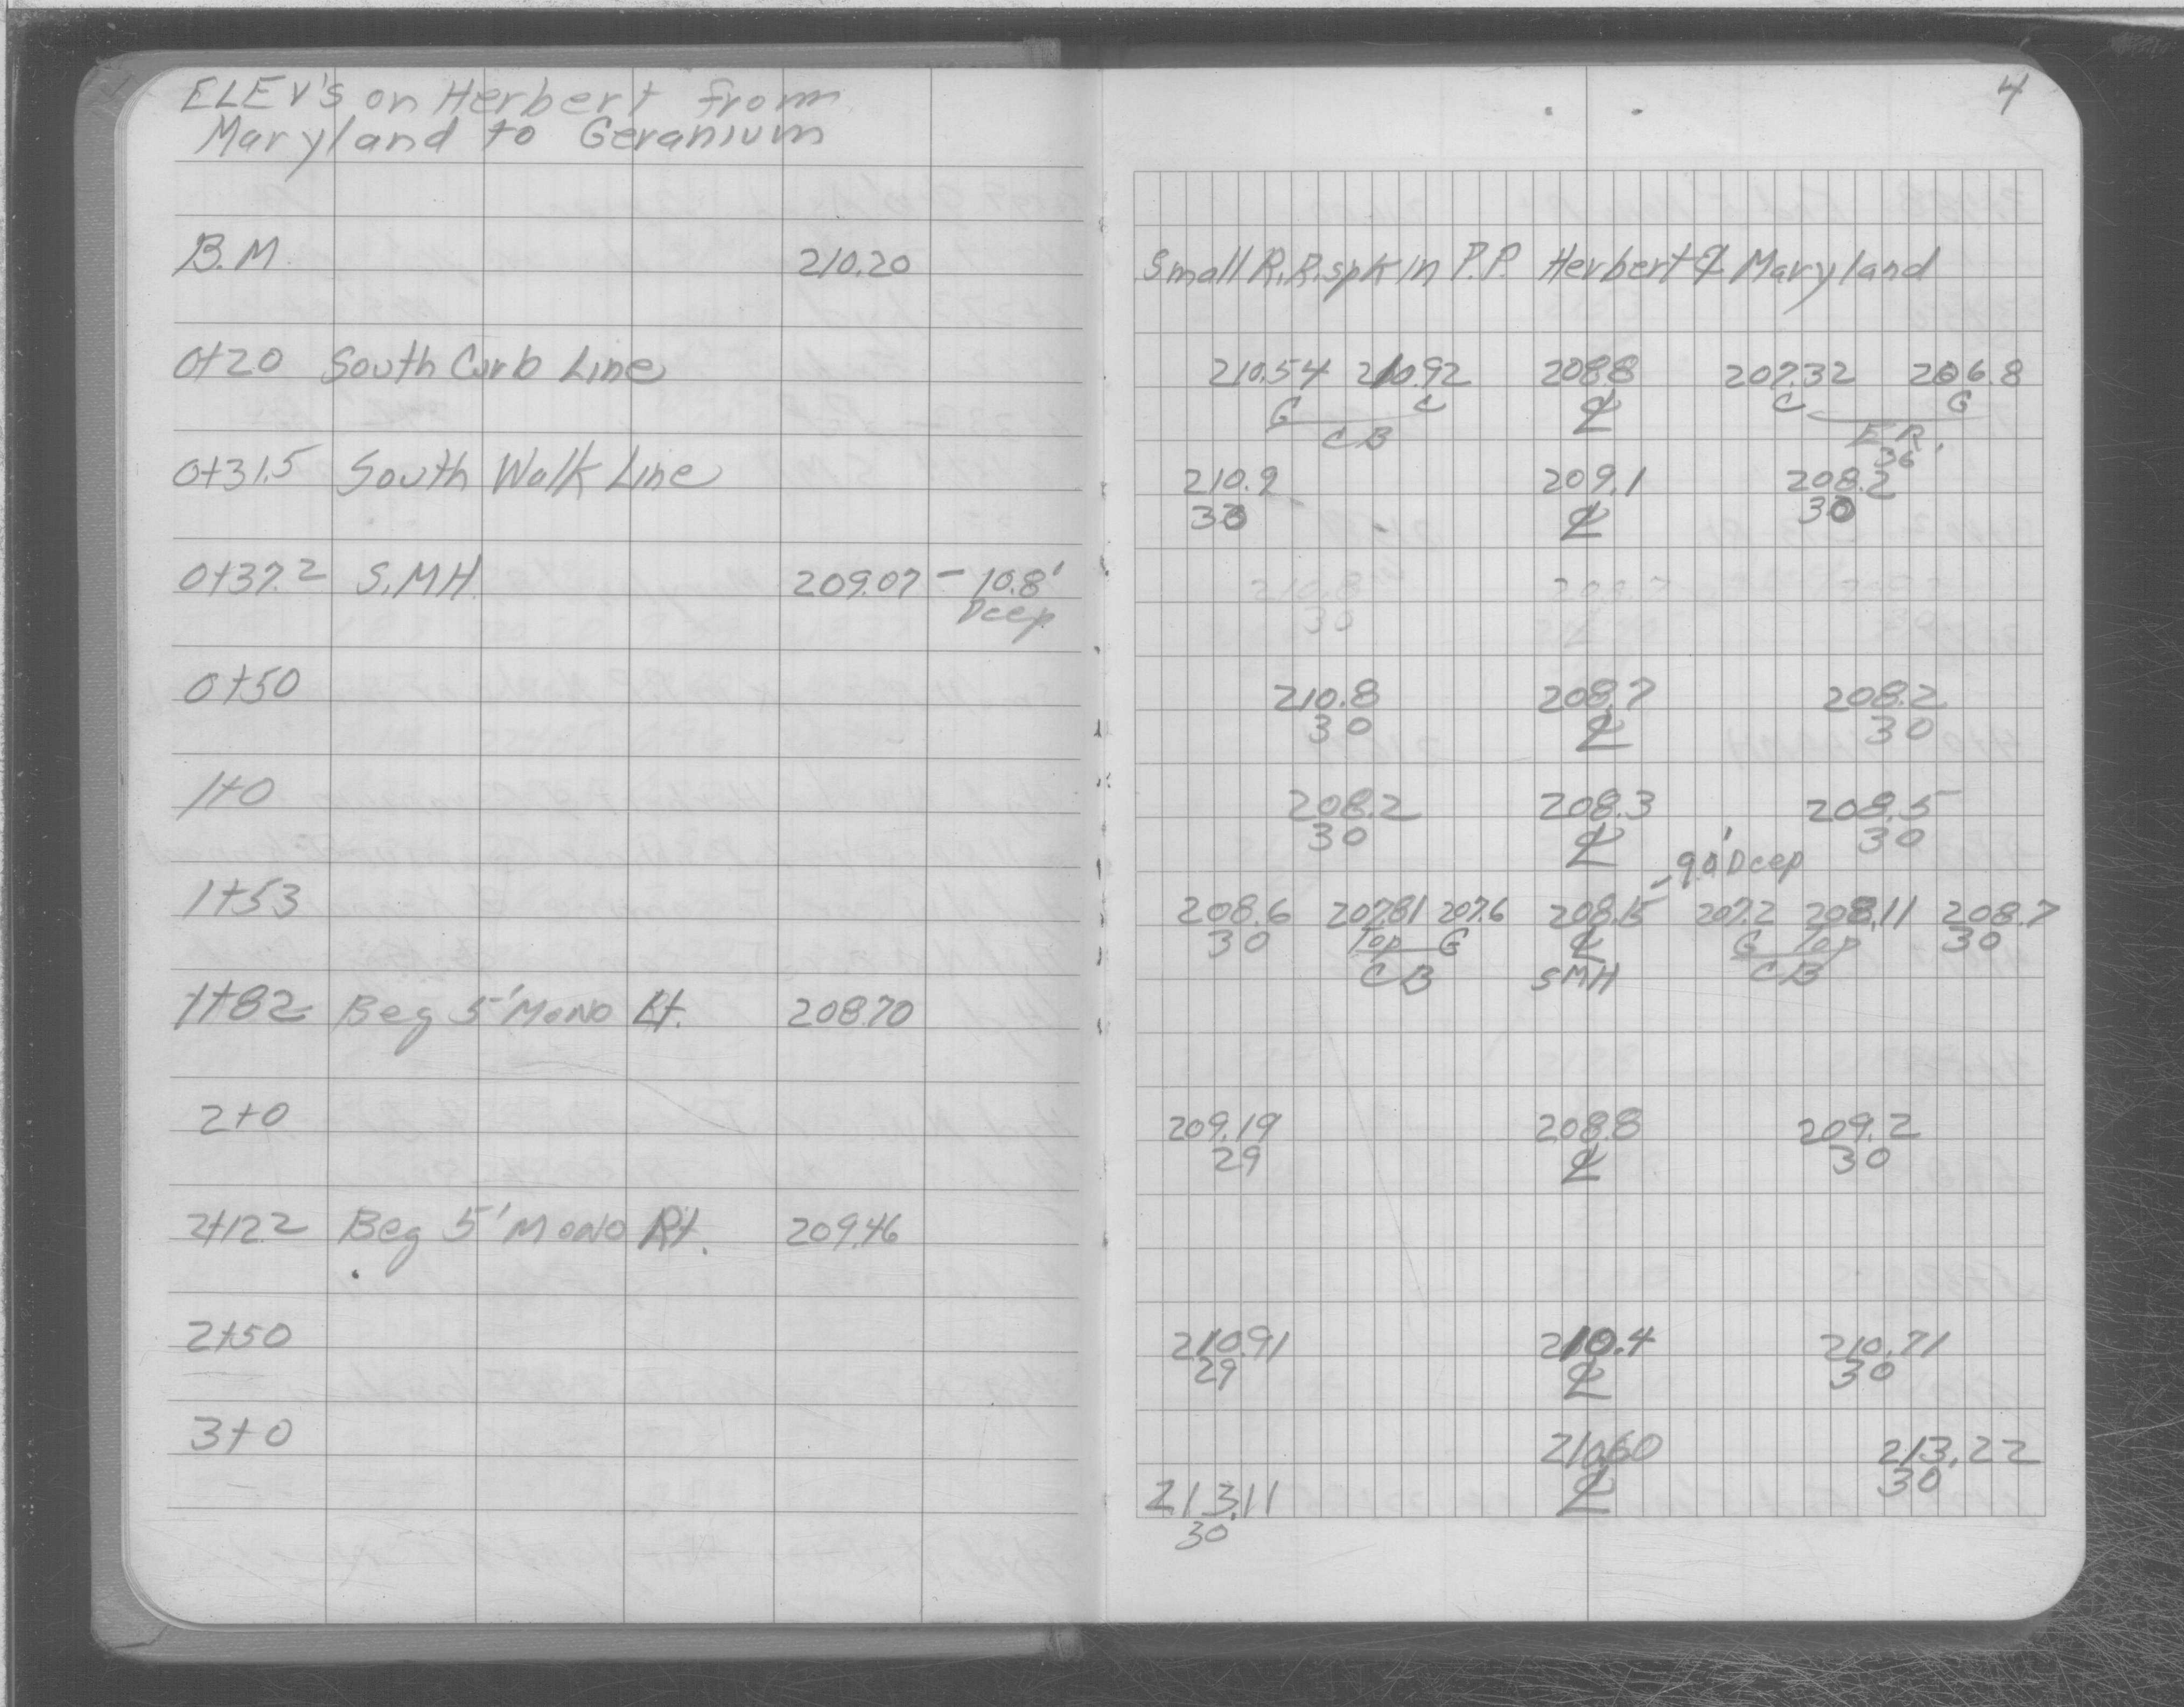 ELEV's on Herbert from
Maryland to Geranium
4
B.M. 210.20 Small R.R. spk in P.P. Herbert & Maryland
0+20 South Curb Line 210.54 210.92 208.8 207.32 206.8
G C ℄ C G
CB E.R.
36
0+31.5 South Walk Line 210.9 209.1 208.2
33 ℄ 30
0+37.2 S.MH. 209.07 - 10.8'
Deep
210.8 208.7 208.2
30 ℄ 30
0+50 210.8 208.7 208.2
30 ℄ 30
1+0 208.2 208.3 208.5
30 ℄ 30
- 9.0' Deep
1+53 208.6 207.81 207.6 208.15 207.2 208.11 208.7
30 Top G ℄ G Top 30
CB SMH CB
1+82 Beg 5' Mono Lt. 208.70
2+0 209.19 208.8 209.2
29 ℄ 30
2+12.2 Beg 5' Mono Rt. 209.46
2+50 210.91 210.4 210.71
29 ℄ 30
3+0 210.60 213.22
℄ 30
213.11
30